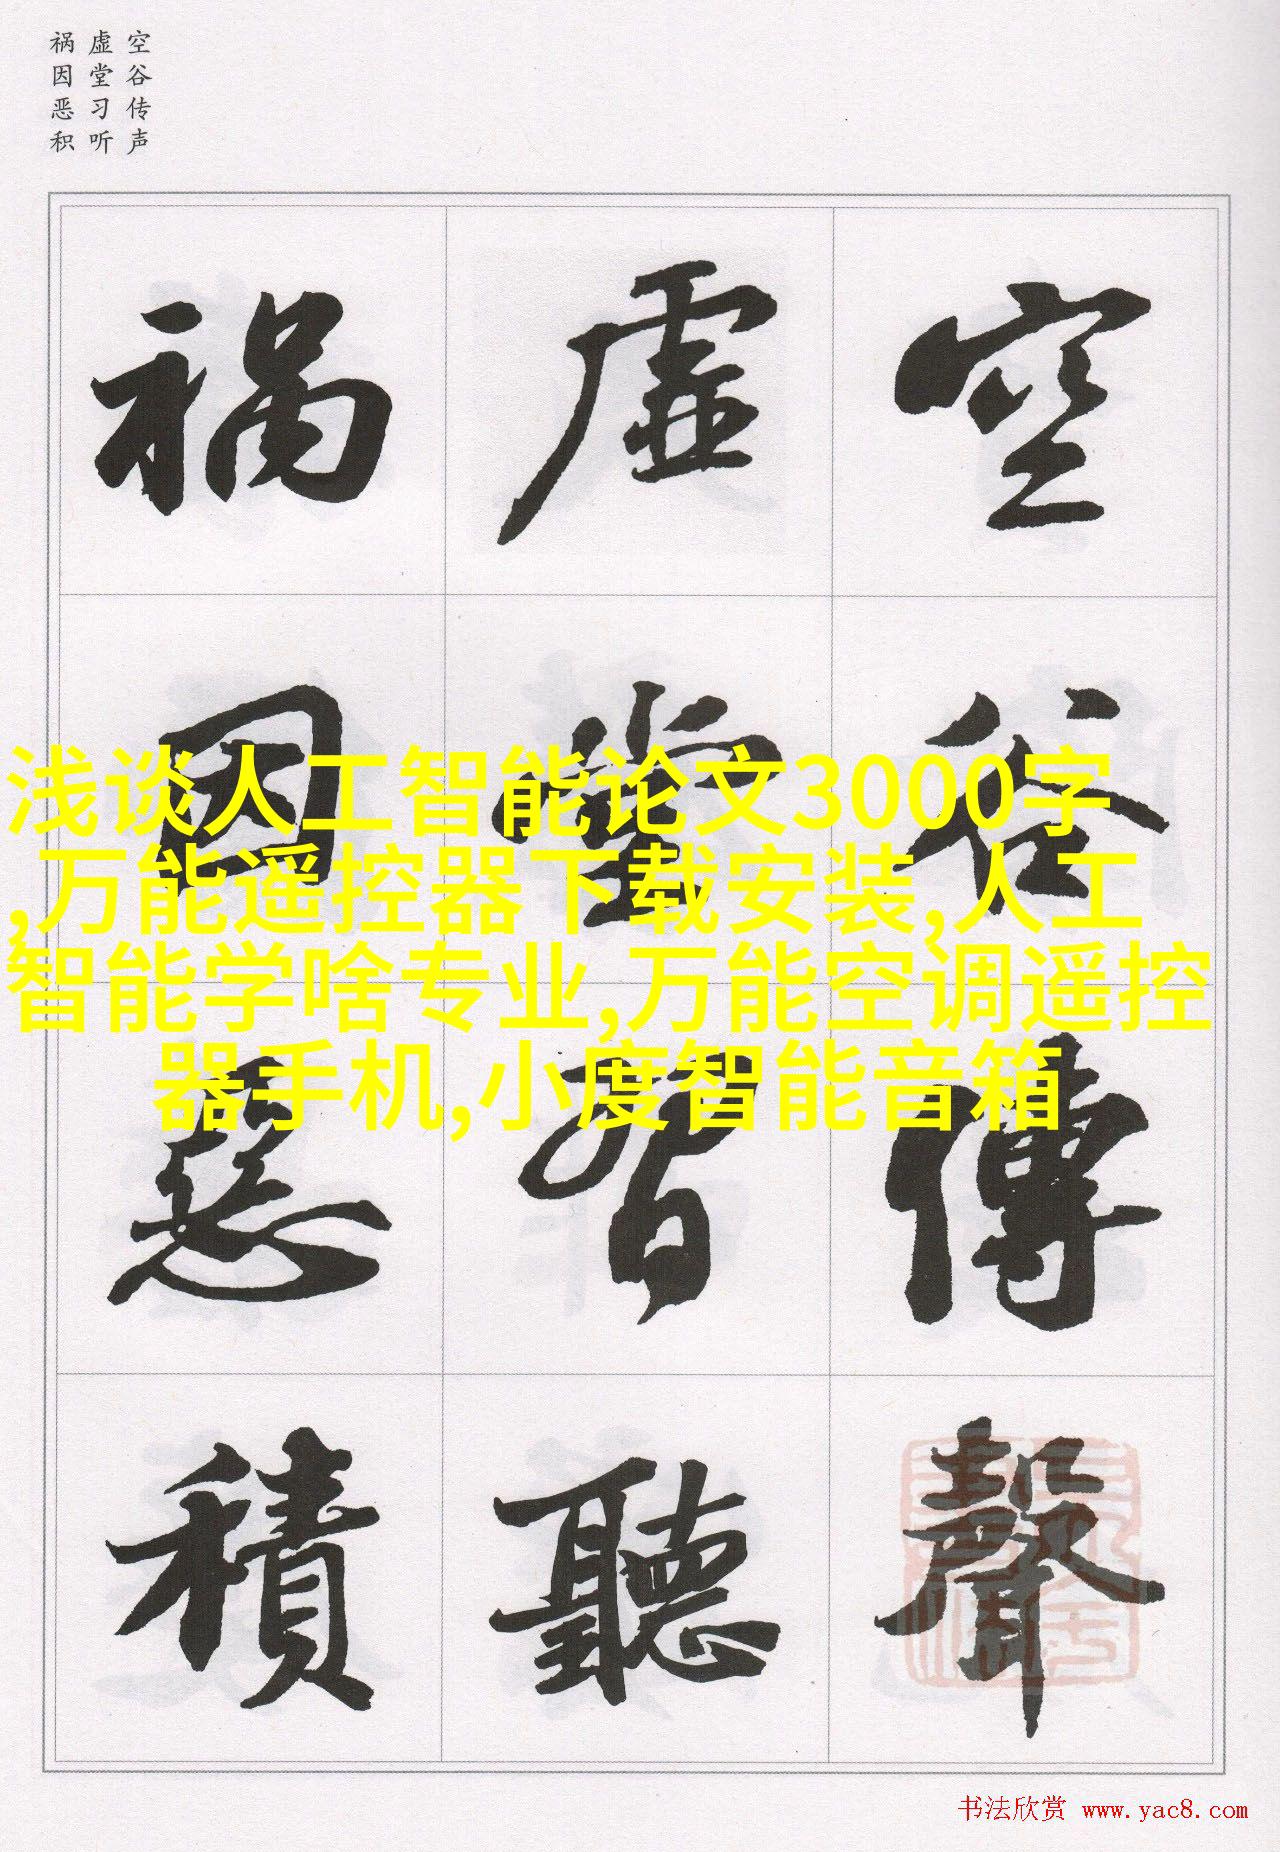 空谷传声
虚堂习听
祸因恶积
空谷傳聲
虚堂習聽
禍因惡積
浅谈人工智能论文3000字
,万能遥控器下载安装,人工
智能学啥专业,万能空调遥控
器手机,小度智能音箱
书法欣赏 www.yac8.com